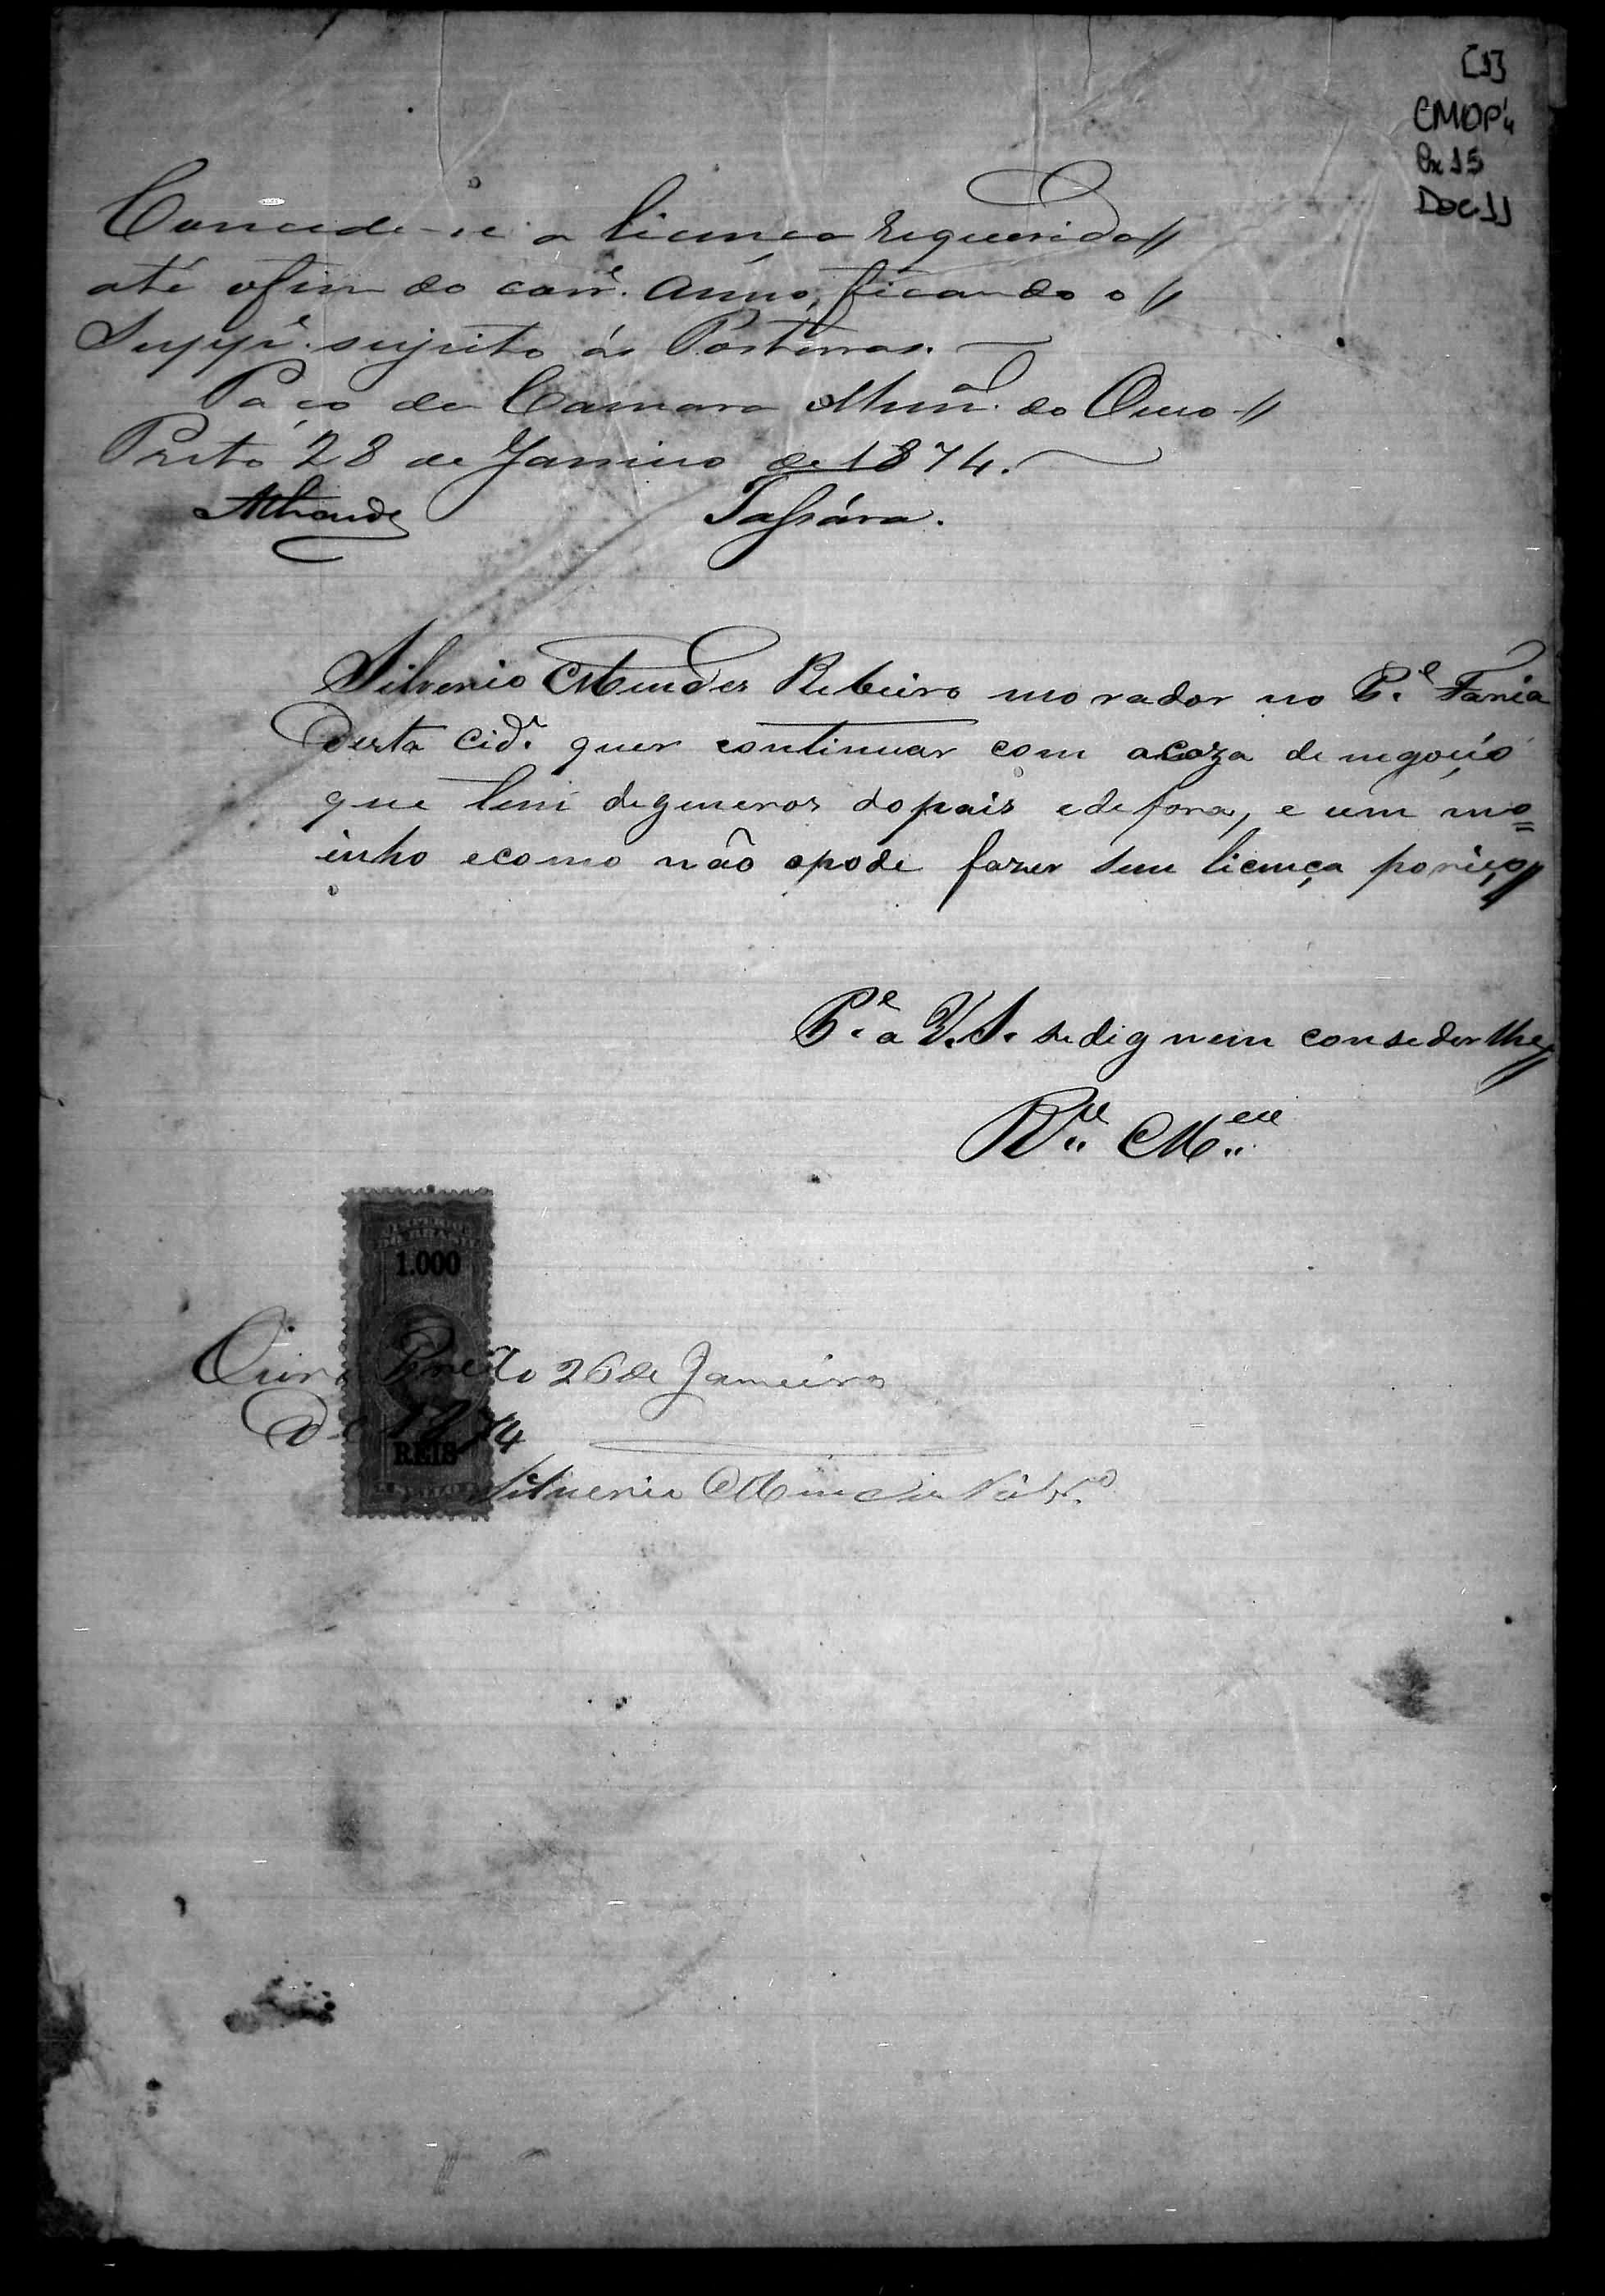 [1]
CMOP
Cx 15
Doc. 11
Concede-se a licença requerida
até o fim do corr.e anno, ficando o
Supp.e sujeito ás Posturas.
Paço da Camara Mun.al do Ouro
Preto 28 de Janeiro de 1874.
Tassára.
Silverio Mendes Ribeiro morador no P.e Faria
desta cid.e quer continuar com acaza de negoçio
que tem degeneros dopais edefora, e um mo=
inho ecomo não opode fazer sem licença porisço
P.e a V.S. sedignem consederlhe
R.ce M.ce
IMPERIO
DO BRASIL
1.000
REIS
Ouro Preto 26 de Janeiro
de 1874
Silverio Mendes Ribr.o